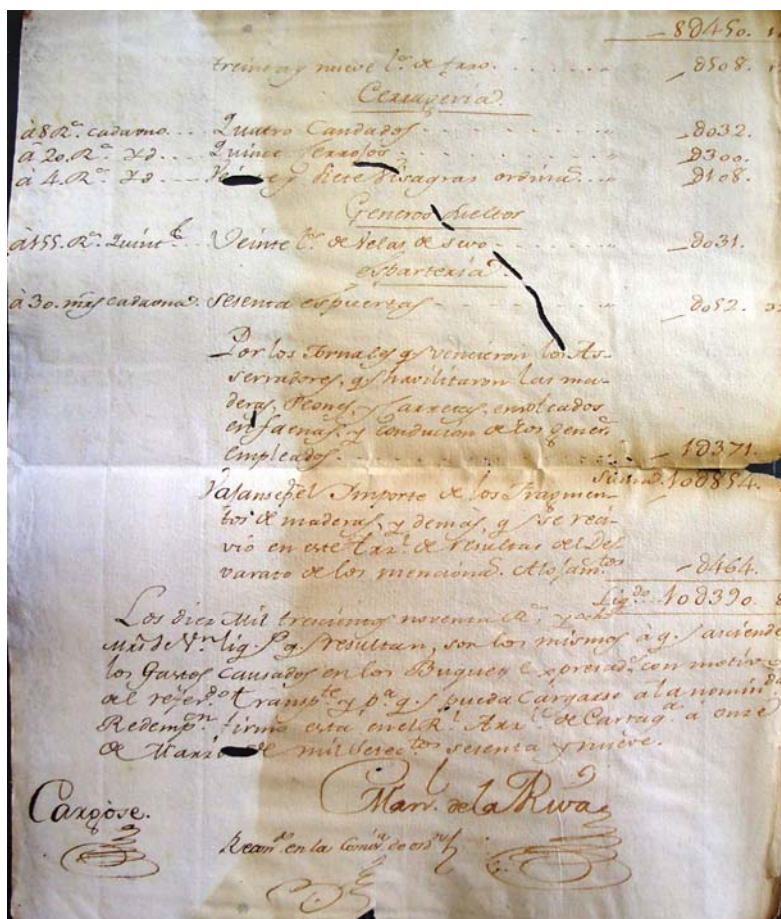 8d450.
treinta y nueve l.s de fxxo. _d508.
Cerrageria
à 8 R.s cadauno. Quatro Candados _do32.
à 20. R.s Yd. Quince Serrojos _d300.
à 4. R.s Yd. y siete Visagras ordina.s _d108.
Generos sueltos
à 155. R.s Quint.l Veinte l.s de Velas de sevo _do31.
espartería
à 30. mrs cadauna. sesenta espuertas _do52.
Por los Jornales q.e vencieron los As-
serradores, q.e havilitaron las ma-
deras, Peones, y Carretas, empleados
en faenas, y Conducion de los gener.s
empleados. 1d371.
Suma 10d854.
Vajanse p.r el Importe de los Fragmen-
tos de maderas, y demas, q.e se reci-
vió en este Arz.l de resultas del Des
varato de los menciona.s Alojam.tos _d464.
Liq.do 10d390.
Los diez Mil trecientos noventa R.s y ocho
Mrs de V.n liq.s q.e resultan, son los mismos à q.e asciende
los Gastos Causados en los Buques expresad.s con motivo
al refer.do transp.te y p.a q.e pueda Cargarse a la nomin.da
Redemp.on firmo esta en el R.l Arz.l de Cartag.a à onze
de Marzo de mil setec.tos sesenta y nueve.
Man.l de la Riva
Cargòse.
en la